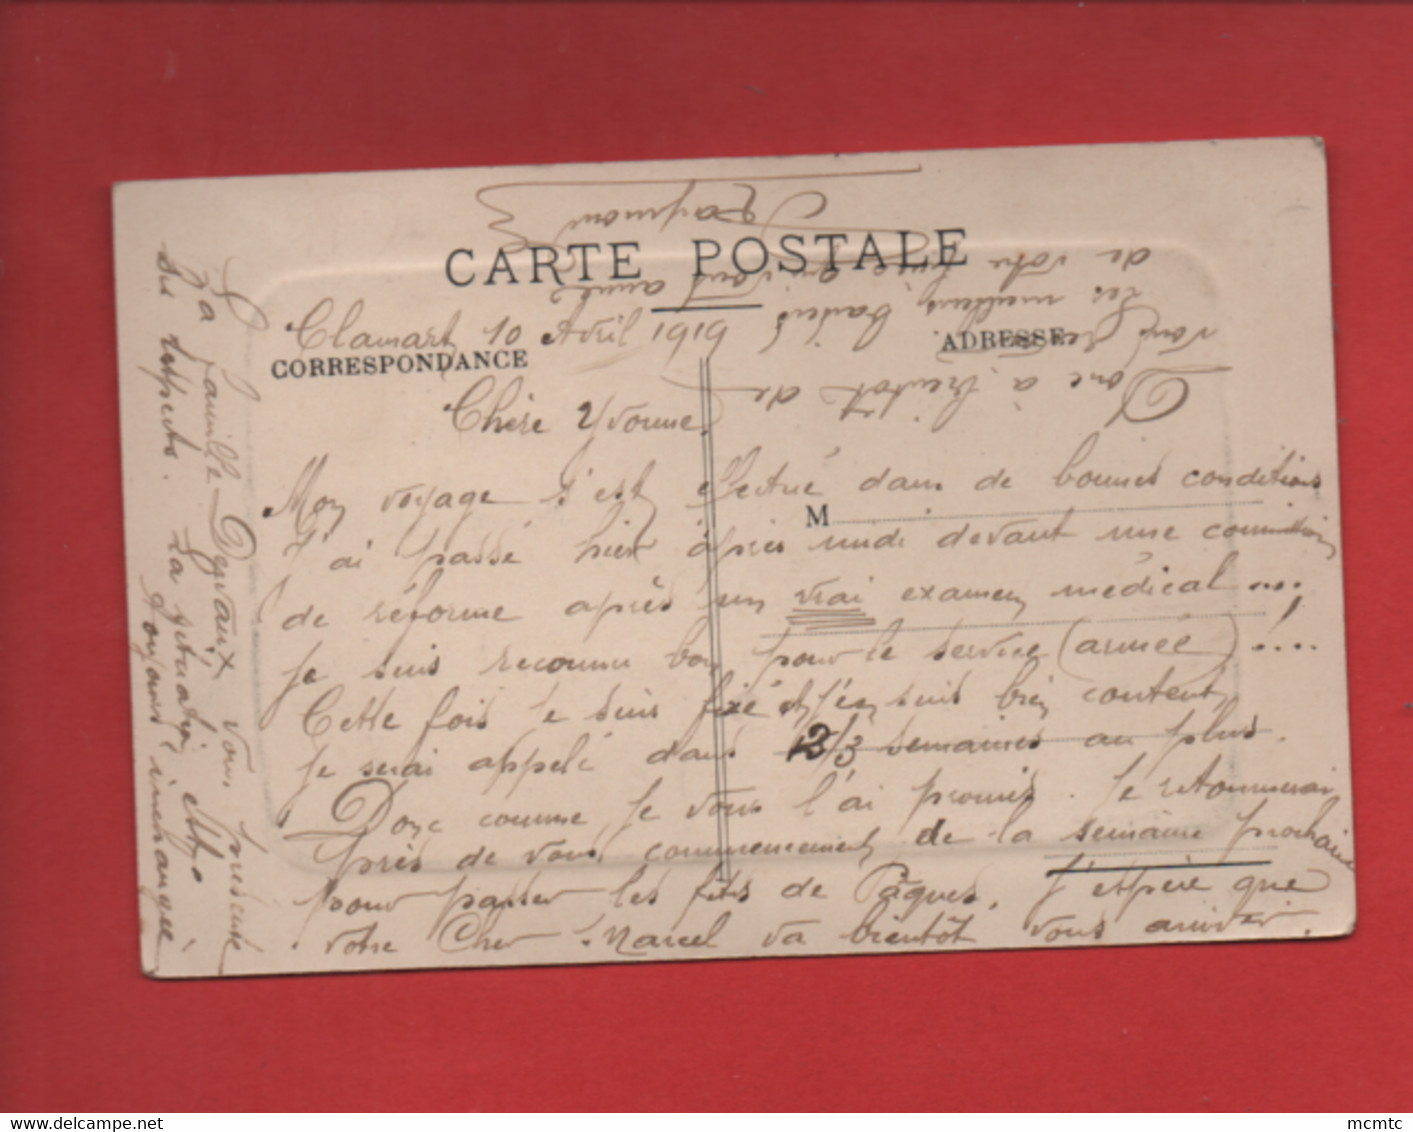 CARTE POSTALE
CORRESPONDANCE
ADRESSE
M
Clamart, 10 Avril 1916
Chère Yvonne,
Mon voyage s'est effectué dans de bonnes conditions
J'ai passé hier après midi devant une commission
de réforme après un vrai examen médical ...
je suis reconnu bon pour le service (armée) !...
Cette fois je suis fixé et j'en suis bien content,
je serai appelé dans 2/3 semaines au plus.
Donc comme je vous l'ai promis. Je retournerai
près de vous commencement de la semaine prochaine
pour passer les fêtes de Pâques. J'espère que
votre Cher Marcel va bientôt vous arriver.
La famille Devaux vous présente
ses respects. La situation est
toujours inchangée
Donc à bientôt de
vous
Les meilleurs baisers
de votre qui vous aime
Raymond
mcmtc